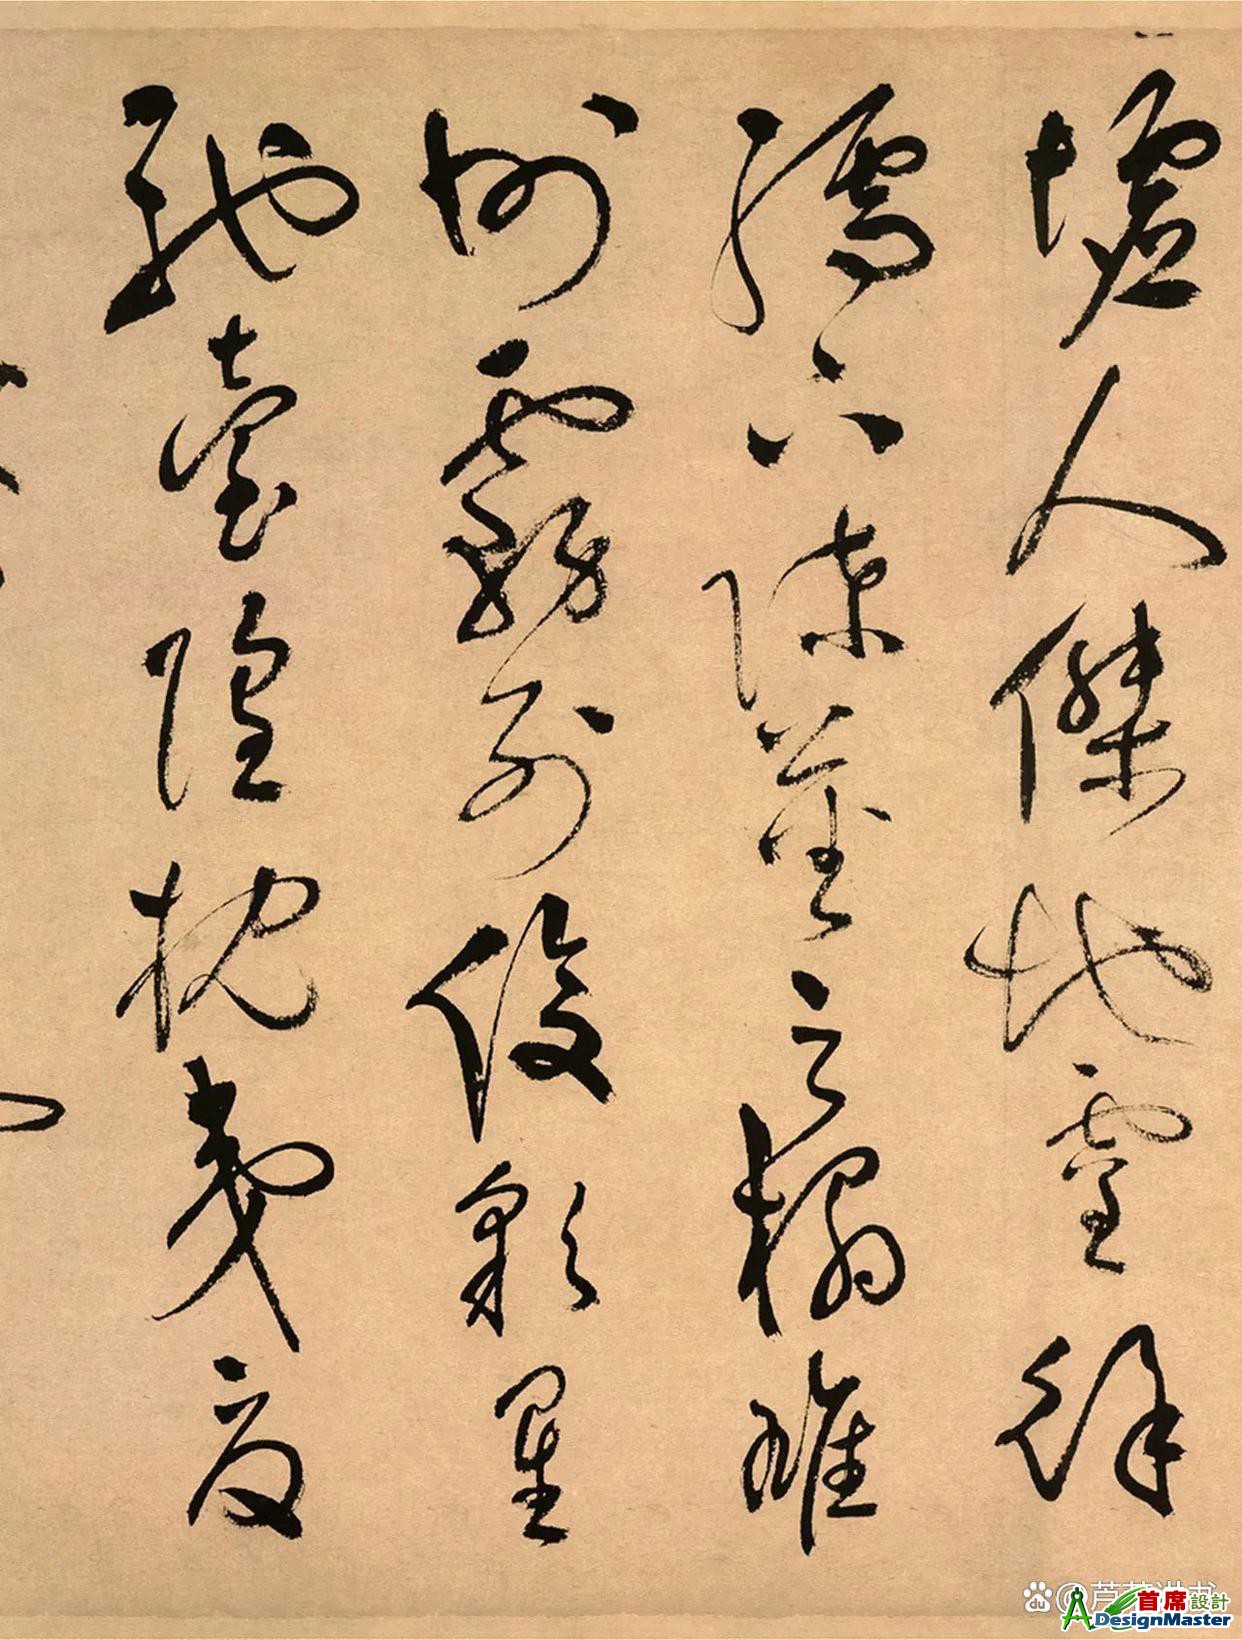 墟人傑地靈徐
孺下陳蕃之榻雄
州霧列俊彩星
馳臺隍枕夷夏
首席設計
ADesignMaster